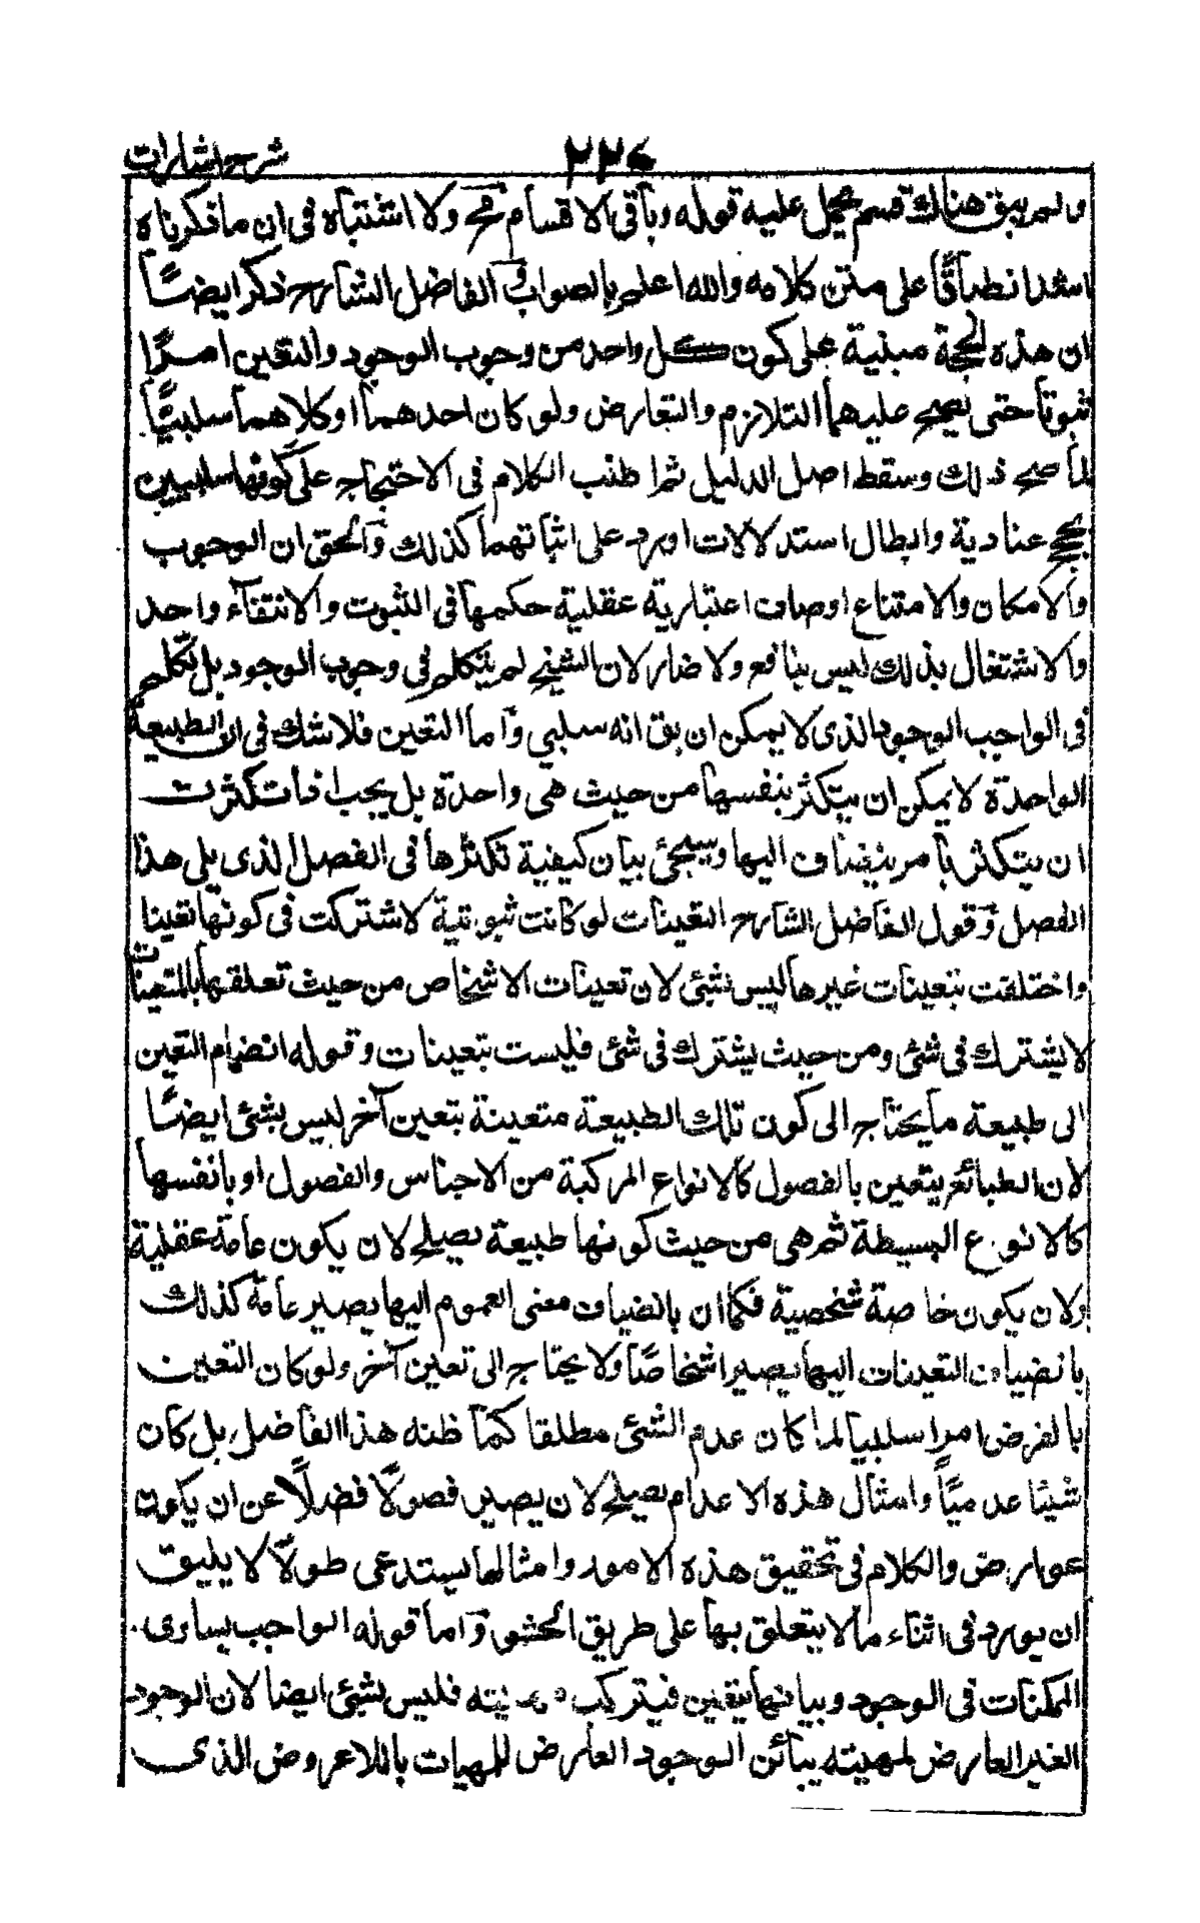 شرح اشارات ٢٢٤
ولم يبق هناك قسم يحمل عليه قوله وباقى الاقسام مح ولا اشتباه فى ان ما ذكرناه
اشد انطباقًا على متن كلامه والله اعلم بالصواب الفاضل الشارح ذكر ايضًا
ان هذه الحجة مبنية على كون كل واحد من وجوب الوجود والتعين امرًا
ثبوتيا حتى يصح عليهما التلازم والتعارض ولو كان احدهما او كلاهما سلبيًّا
لما صح ذلك وسقط اصل الدليل ثم اطنب الكلام فى الاحتجاج على كونهما سلبيين
بحجج عنادية وابطال استدلالات اورد على اثباتهما كذلك والحق ان الوجوب
والامكان والامتناع اوصاف اعتبارية عقلية حكمها فى الثبوت والانتفاء واحد
والاشتغال بذلك ليس بنافع ولا ضار لان الشيخ لم يتكلم فى وجوب الوجود بل تكلم
فى الواجب الوجود الذى لا يمكن ان يق انه سلبي واما التعين فلا شك فى ان الطبيعة
الواحدة لا يمكن ان يتكثر بنفسها من حيث هى واحدة بل يجب اذا تكثرت
ان يتكثر بامر ينضاف اليها وسيجئ بيان كيفية تكثرها فى الفصل الذى يلى هذا
الفصل وقول الفاضل الشارح التعينات لو كانت ثبوتية لاشتركت فى كونها تعينا
واختلفت بتعينات غيرها ليس بشئ لان تعينات الاشخاص من حيث تعلقها بالمتعينات
لا يشترك فى شئ ومن حيث يشترك فى شئ فليست بتعينات وقوله انضمام التعين
الى طبيعة ما يحتاج الى كون تلك الطبيعة متعينة بتعين آخر ليس بشئ ايضًا
لان الطبائع يتعين بالفصول كالانواع المركبة من الاجناس والفصول او بانفسها
كالانواع البسيطة ثم هى من حيث كونها طبيعة يصلح لان يكون عامة عقلية
ولان يكون خاصة شخصية فكما ان بانضياف معنى العموم اليها يصير عامة كذلك
بانضياف التعينات اليها يصير اشخاصًا ولا يحتاج الى تعين آخر ولو كان التعين
بالفرض امرا سلبيا لما كان عدم الشئ مطلقا كما ظنه هذا الفاضل بل كان
شيئا عدميًّا وامثال هذه الاعدام يصلح لان يصير فصولًا فضلًا عن ان يكون
عوارض والكلام فى تحقيق هذه الامور وامثالها يستدعى طولًا لا يليق
ان يورد فى اثناء ما لا يتعلق بها على طريق الحشو واما قوله الواجب يساوى
الممكنات فى الوجود ويباينها بتعين فيتركب ليس بشئ ايضا لان الوجود
الغير العارض لمهيته يبائن الوجود العارض للمهيات باللاعروض الذى